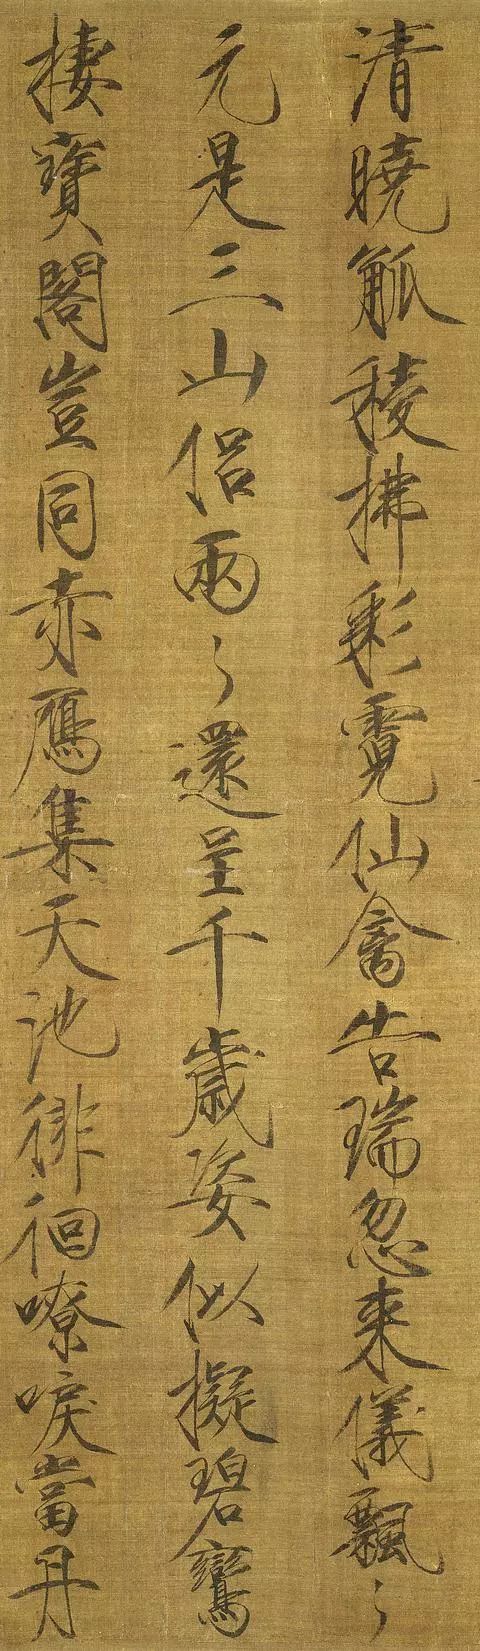 清曉觚稜拂彩霓仙禽告瑞忽来儀飄〻
元是三山侶兩〻還呈千歲姿似擬碧鸞
棲寶閣豈同赤鴈集天池徘徊嘹唳當丹